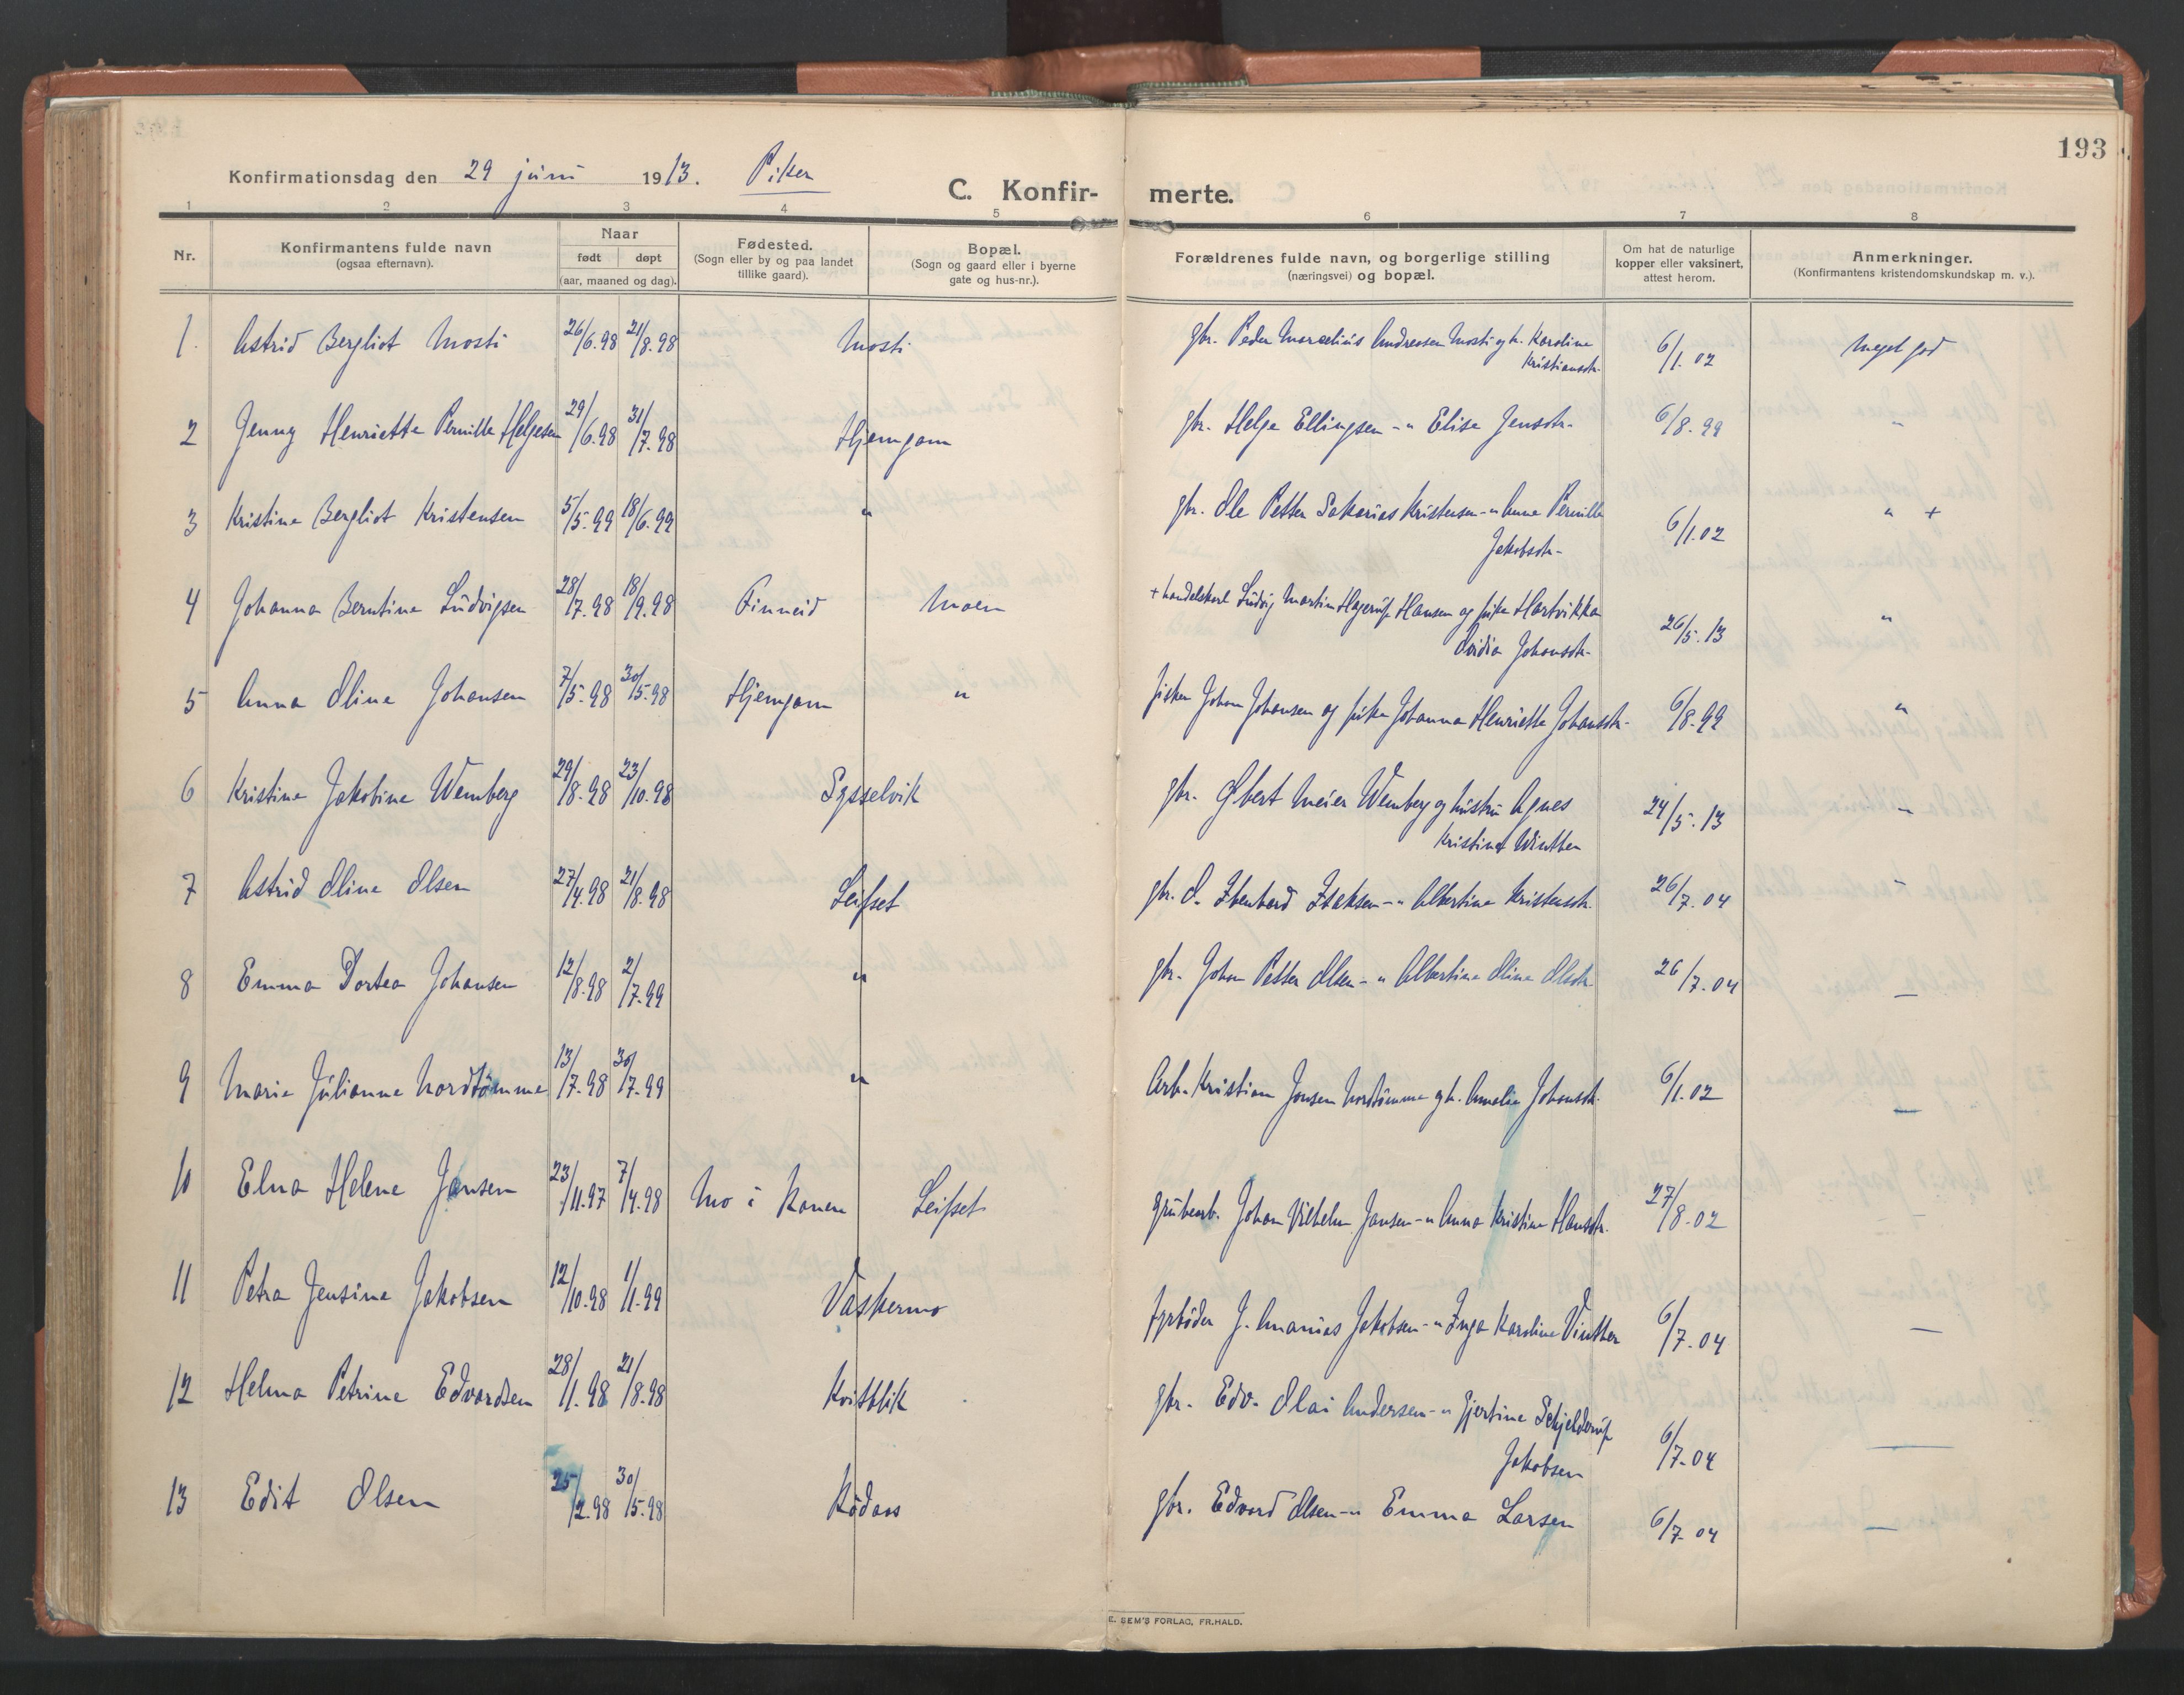 193
Konfirmationsdag den 29 juni 1913. Piker
C. Konfir- merte.
1 2 3 4 5 6 7 8
Nr. Konfirmantens fulde navn (ogsaa efternavn). Naar født døpt (aar, maaned og dag). Fødested. (Sogn eller by og paa landet tillike gaard). Bopæl. (Sogn og gaard eller i byerne gate og hus-nr.). Forældrenes fulde navn, og borgerlige stilling (næringsvei) og bopæl. Om hat de naturlige kopper eller vaksinert, attest herom. Anmerkninger. (Konfirmantens kristendomskundskap m. v.).
1. Astrid Bergliot Mosti 26/6.98 21/8.98 Mosti gbr. Peder Marcelius Andreasen Mosti og h. Karoline 6/1.02 Meget god
Kristiansdtr.
2 Jenny Henriette Pernille Helgesen 29/6.98 31/7.98 Hjemgam gbr. Helge Ellingsen - " Elise Jensdtr. 6/8.99 "
3 Kristine Bergliot Kristensen 5/5.99 18/6.99 " gbr. Ole Petter Sakarias Kristensen - " Anna Pernille 6/1.02 " +
Jakobsdtr.
4 Johanna Berntine Ludvigsen 28/7.98 18/9.98 Finneid Moen + handelskarl Ludvig Martin Hagerup Hansen og pike Hartvikka 26/5.13 "
Ovidia Johansdtr.
5 Anna Oline Johansen 7/5.98 30/5.98 Hjemgam " fisker Johan Johansen og pike Johanna Henriette Johansdtr. 6/8.99 "
6 Kristine Jakobine Wemberg 29/8.98 23/10.98 Sysselvik gbr. Ebert Meier Wemberg og hustru Agnes 24/5.13 "
Kristine Winther
7 Astrid Oline Olsen 27/4.98 21/8.98 Leifset gbr. O. Edenhard Isaksen - " Albertine Kristensdtr. 26/7.04 "
8 Emma Dortea Johansen 12/8.98 2/7.99 " gbr. Johan Petter Olsen - " Albertine Oline Olsdtr. 26/7.04 —
9 Marie Julianne Nordtømme 13/7.98 30/7.99 " Arb. Kristian Jonsen Nordtømme og h. Amalie Johansdtr. 6/1.02 —
10 Elna Helene Jansen 23/11.97 7/4.98 Mo i Ranen Leifset Grubearb. Johan Vilhelm Jansen - " Anna Kristine Hansdtr. 27/8.02 —
11 Petra Jensine Jakobsen 12/10.98 1/1.99 Vaskermo fyrbøder J. Ananias Jakobsen - " Inga Karoline Vinther 6/7.04 —
12 Helma Petrine Edvardsen 28/1.98 21/8.98 Kvitblik gbr. Edv. Olai Andersen - " Gjertine Schjelderup 6/7.04 —
Jakobsen
13 Edit Olsen 25/2.98 30/5.98 Rødaas gbr. Edvard Olsen - " Emma Larsen 6/7.04 —
E. SEM'S FORLAG, FR.HALD.